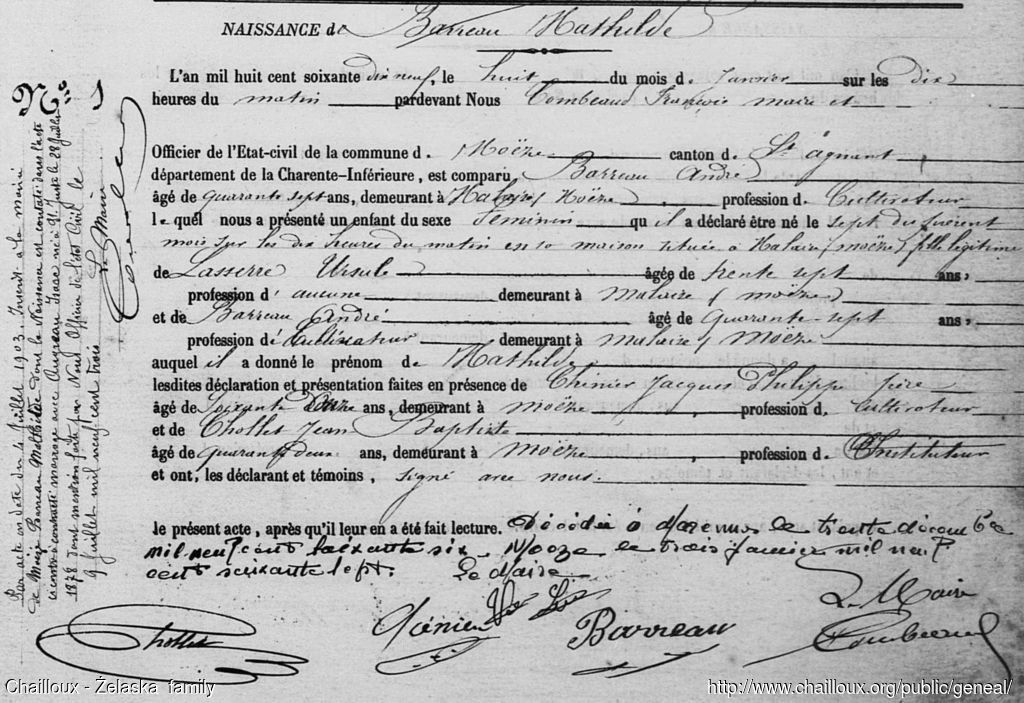 NAISSANCE de Barreau Mathilde
L'an mil huit cent soixante dix neuf, le huit du mois de Janvier sur les dix
heures du matin pardevant Nous Combeaud François maire et
Officier de l'Etat-civil de la commune d. Moëze canton d. St agnant
département de la Charente-Inférieure, est comparu, Barreau André
âgé de quarante sept ans, demeurant à Malaire (Moëze) , profession d. Cultivateur
le quel nous a présenté un enfant du sexe feminin qu il a déclaré être né le sept du courent
mois sur les dix heures du matin en sa maison située à Malaire (moëze) fille légitime
de Lasserre Ursule âgée de trente sept ans,
profession d' aucune demeurant à malaire (moëze)
et de Barreau André âgé de Quarante-sept ans,
profession de Cultivateur demeurant à malaire (moëze
auquel il a donné le prénom de Mathilde
lesdites déclaration et présentation faites en présence de Jacques Philippe père
âgé de Soixante ans, demeurant à moëze , profession d. Cultivateur
et de Chollet Jean Baptiste
âgé de quarante deux ans, demeurant à moëze , profession d. Instituteur
et ont, les déclarant et témoins, signé avec nous.
le présent acte, après qu'il leur en a été fait lecture. Décédée à Marennes le trente décembre
mil neuf cent soixante six. Moëze le trois Janvier mil neuf
cent soixante sept. Le Maire
Le Maire
Chollet
Barreau
Combeaud
No 1
Par acte en date du 4 Juillet 1903, Inscrit à la mairie
de Barreau Mathilde dont la Naissance est constatée dans l'acte
ci-contre a contracté mariage avec né à St Just le 28 Juillet
1878 dont mention faite par Nous Officier de l'état civil le
9 Juillet mil neuf cent trois.
Le Maire
Chailloux - Żelaska family
http://www.chailloux.org/public/geneal/